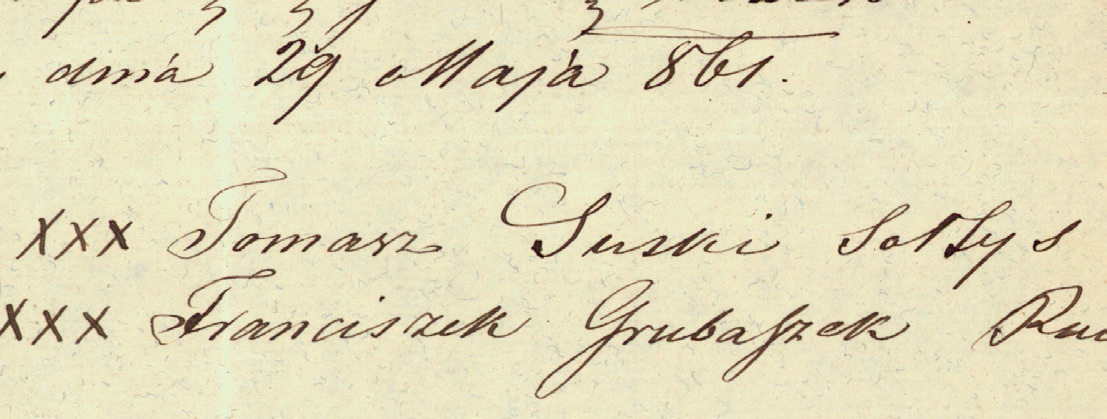 dnia 29 Maja 861.
xxx Tomasz Suski Sołtys
xxx Franciszek Grubaszek